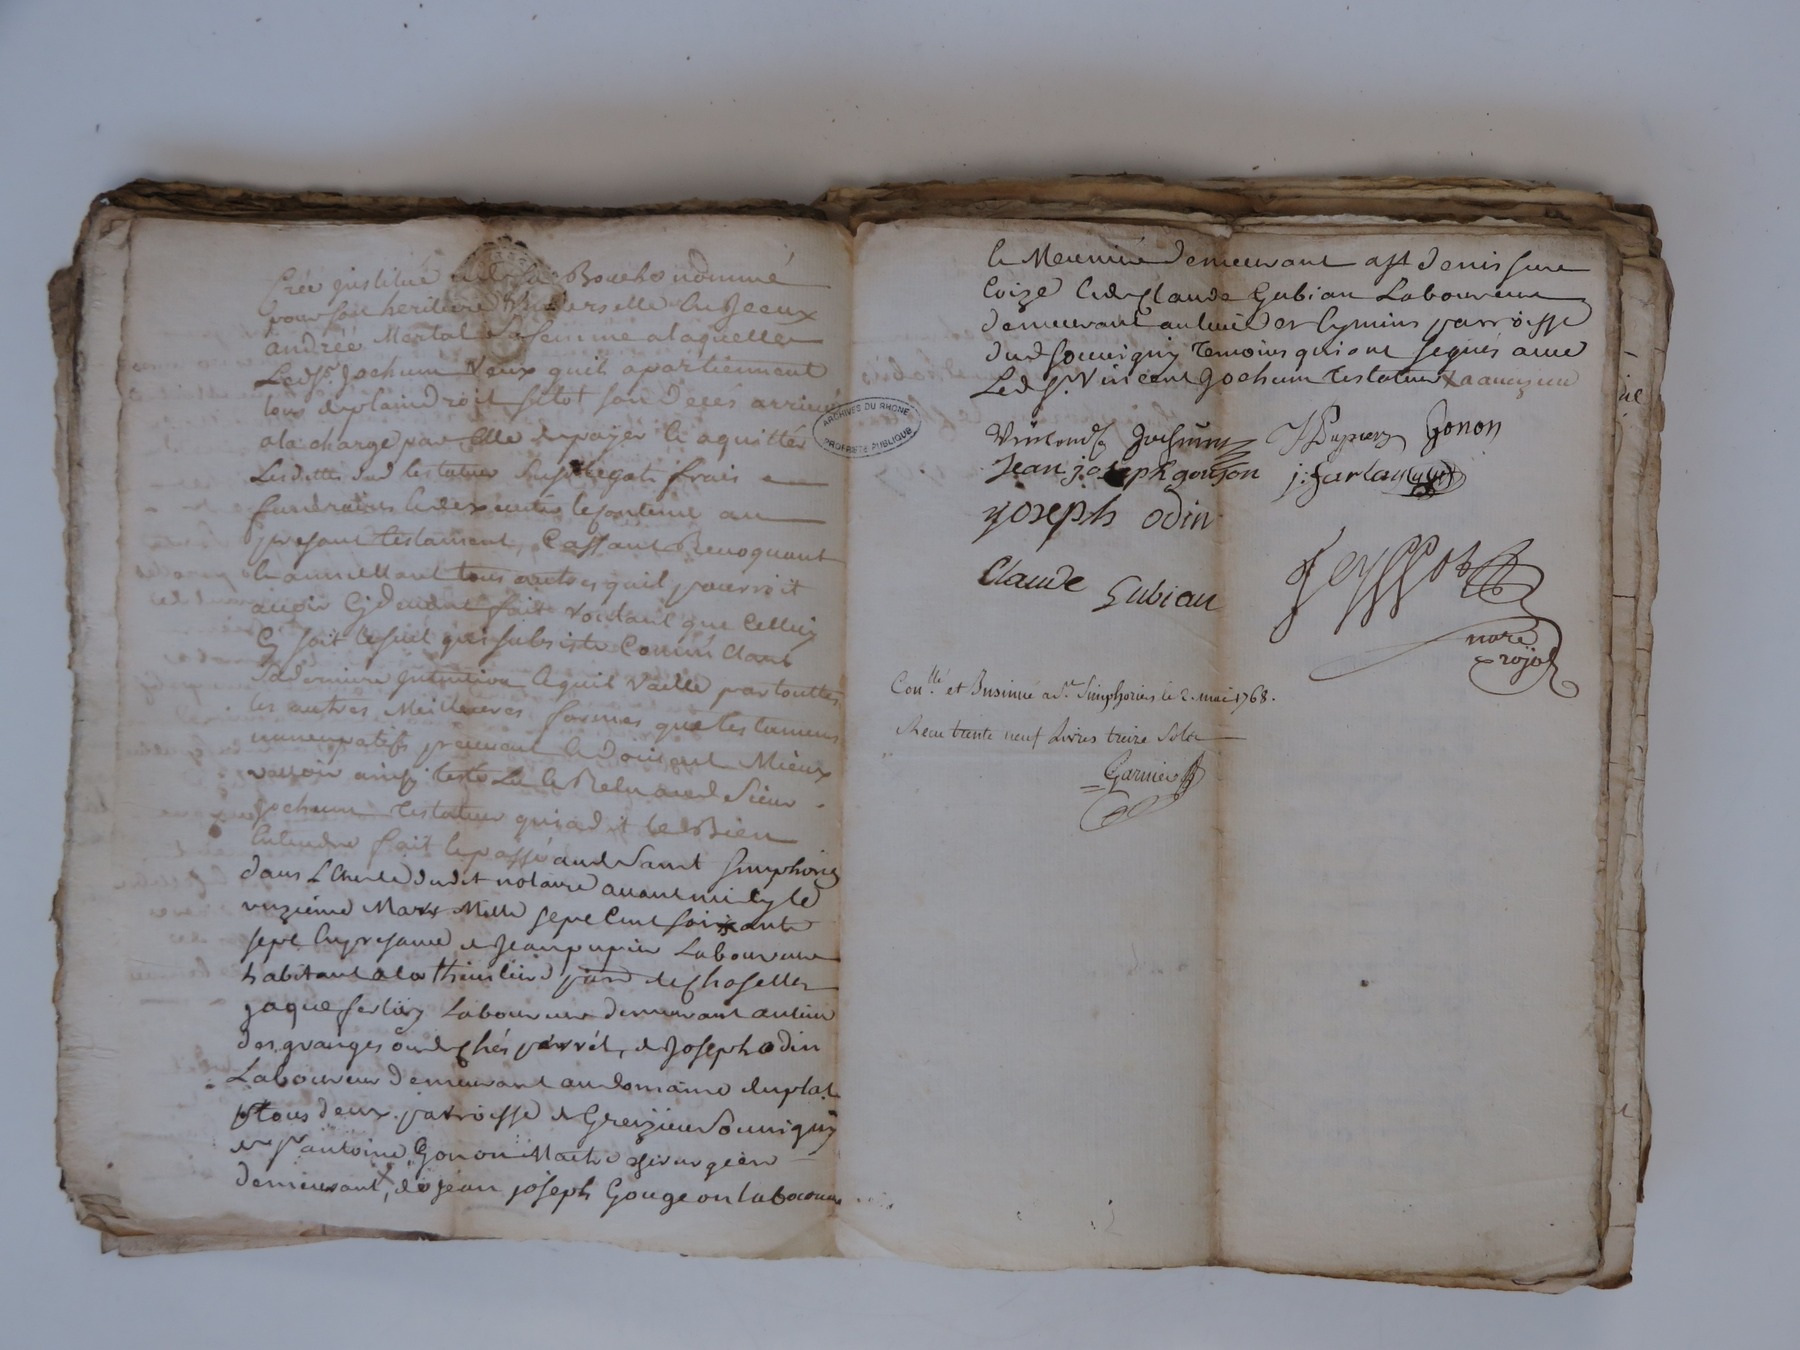 Crée institué et de sa Bouche nommé
pour son heritiere Universelle
andrée Mertal sa femme a laquelle
Ledsr. Jochum Veux quil apartiennent
tous de plain droit sitot son Deces arrivé
a la charge par Elle de payer & aquitter
Lesdettes dud testateur legats frais
funeraires & dexecuter le contenu au
present testament, Cassant Revoquant
& annullant tous autres quil pourroit
avoir Cy devant fait voulant que Celluy
Cy soit le seul qui subsiste Comme Etant
sa derniere intention & quil Vaille par touttes
les autres Meilleures formes que testamens
nuncupatifs peuvent & Doivent Mieux
valloir ainsy testé Lu & Relu aud Sieur
Jochum testateur qui a dit le Bien
Entendre fait & passé aud Saint Simphorien
dans L'Etude dudit notaire avant midy le
unzieme Mars Mille sept Cent soixante
sept En presance de Jean pupier Laboureur
habitant a la parse de Chaselles
Jaque Laboureur demeurant au lieu
des granges de Joseph odin
Laboureur Demeurant au domaine duplat
tous deux parroisse de Grezieu Souvigny
de sr antoine Gonon Maitre
demeurant, de jean joseph Gougeon laboureur
& Meunié demeurant a st denis sur
Coize & de Claude Gubian Laboureur
demeurant au lieu des parroisse
dud Souvigny temoins qui ont signés avec
Led sr. Vincent Jochum testateur
Vincend Jochum Pupier Gonon
Jean joseph goujon
joseph odin
Claude Gubian
nore
royal
Conllé et Insinué a St. Simphorien le 2. mai 1768.
Recu trente neuf Livres treize Sols
Garnier
ARCHIVES DU RHONE
PROPRIETE PUBLIQUE